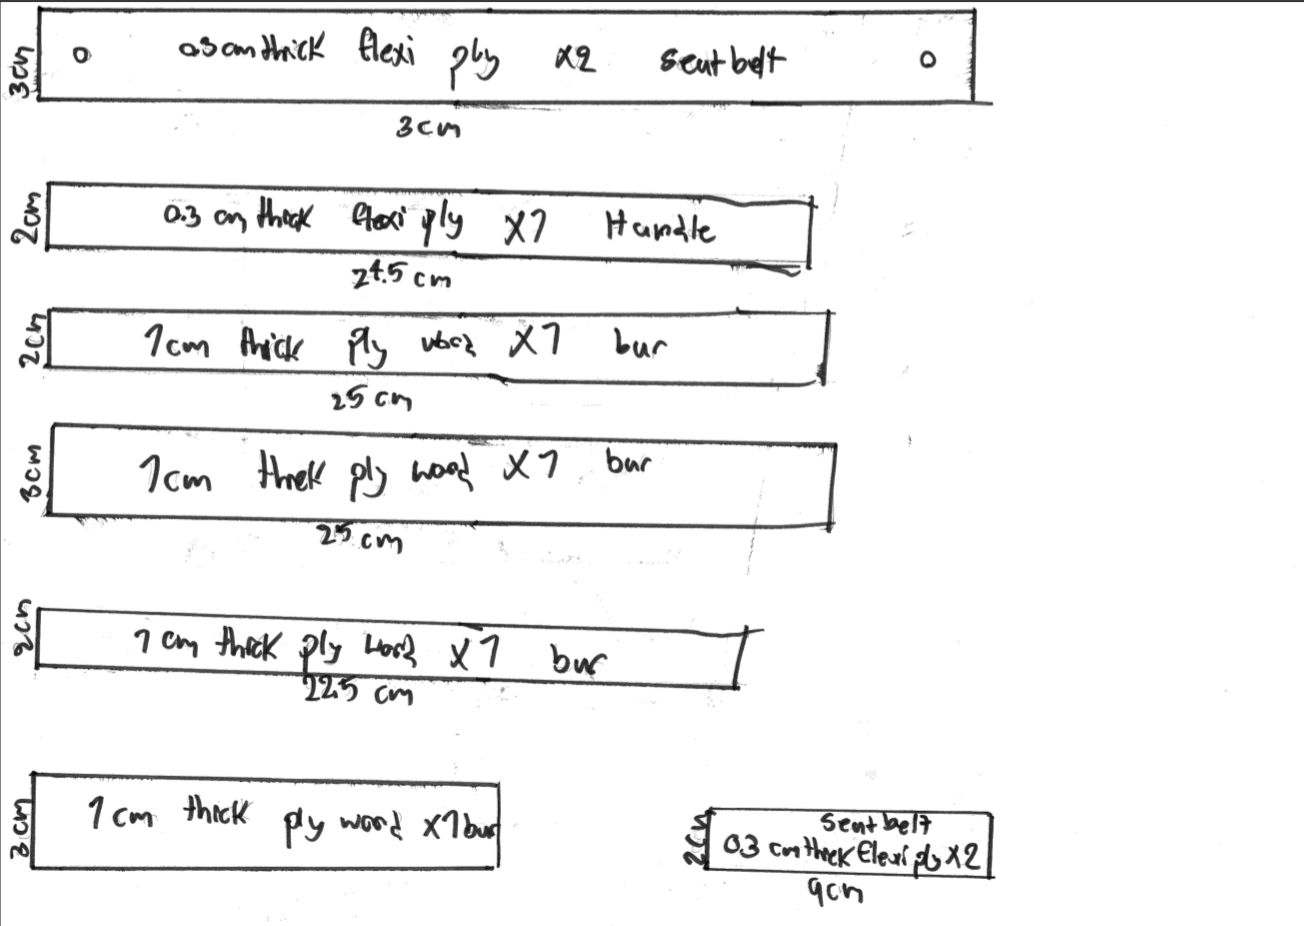 3cm
0.3 cm thick flexi ply x2 seat belt
3cm
2cm
0.3 cm thick flexi ply x1 Handle
24.5 cm
2cm
1cm thick ply wood x1 bar
25 cm
3cm
1cm thick ply wood x1 bar
25 cm
2cm
1 cm thick ply wood x1 bar
22.5 cm
3cm
1cm thick ply wood x1 bar
2cm
seat belt
0.3 cm thick flexi ply x2
9cm